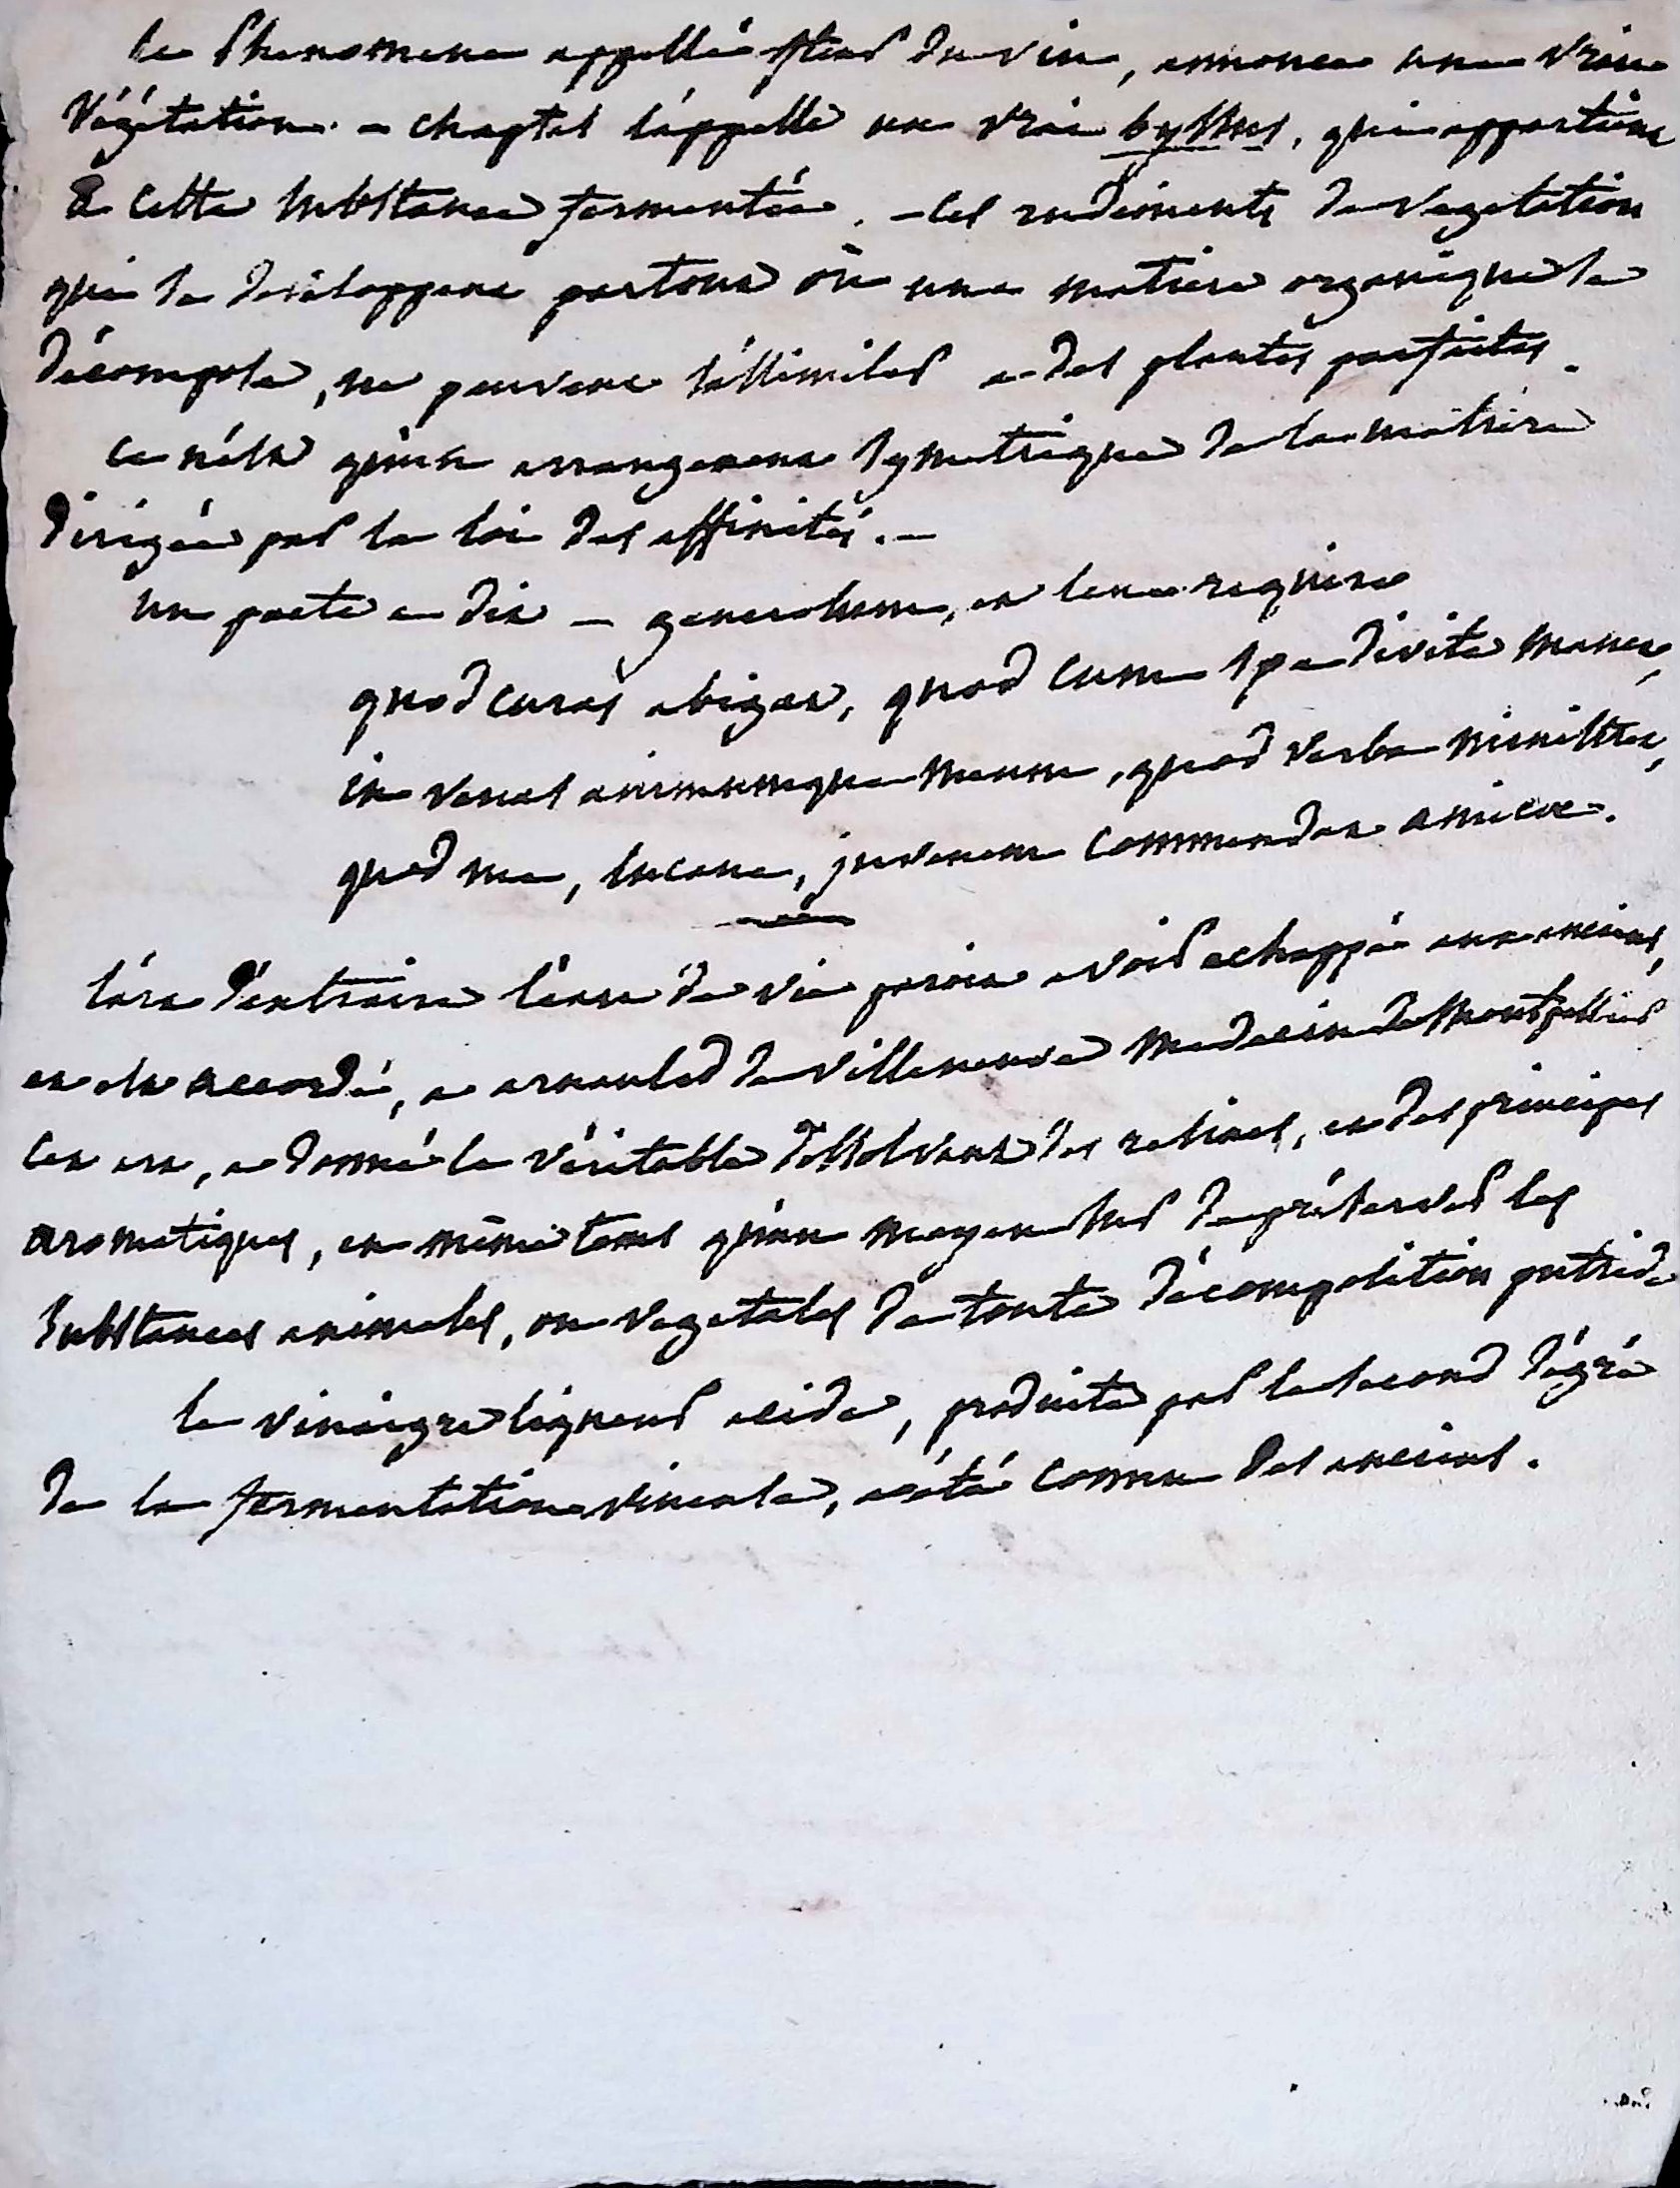 le phenomene appellé fleur du vin, annonce une vraie
végétation. - chaptal l'appelle un vrai byssus, qui appartient
à cette substance fermentée. - les rudiments de vegetation
qui se developpent partout où une matiere organique se
décompose, ne peuvent s'assimiler a des plantes parfaites.
ce n'est qu'un arrangement symetrique de la matiere
dirigée par la loi des affinités. -
un poete a dit - generosum, et lene requiro
quod curas abigat, quod cum spe divite manet,
in venas animumque meum, quod verba ministret,
quod me, lucane, juvenem commendet amicæ.
l'art d'extraire l'eau de vie paroit avoir echappé aux anciens,
et est accordé, a arnauld de villeneuve medecin de Montpellier
cet art, a donné le véritable dissolvant des resines, et des principes
aromatiques, en même tems qu'un moyen sur de préserver les
substances animales, ou vegetales de toute décomposition putride
le vinaigre liqueur acide, produite par le second dégré
de la fermentation vineuse, a été connu des anciens.